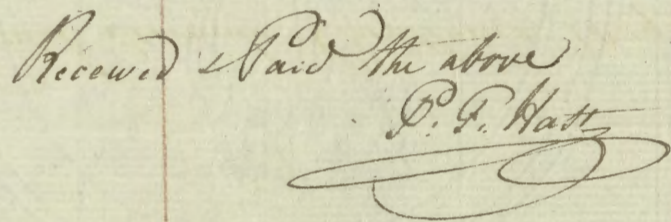 Received & Paid the above
P. F. Hatz